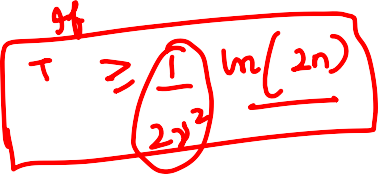 If
T ≥ 1/2γ² ln(2n)